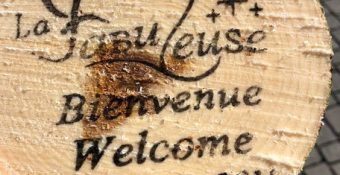 La Fabuleuse
Bienvenue
Welcome